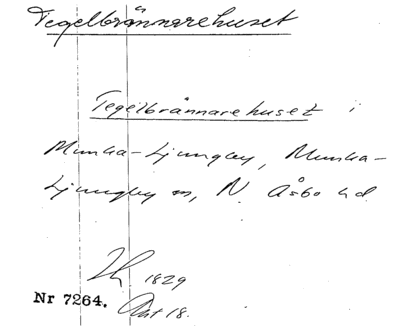 Tegelbrännarehuset
Tegelbrännarehuset i
Munka-Ljungby, Munka-
Ljungby sn, N. Åsbo hd
1829
Nr 7264. Akt 18.